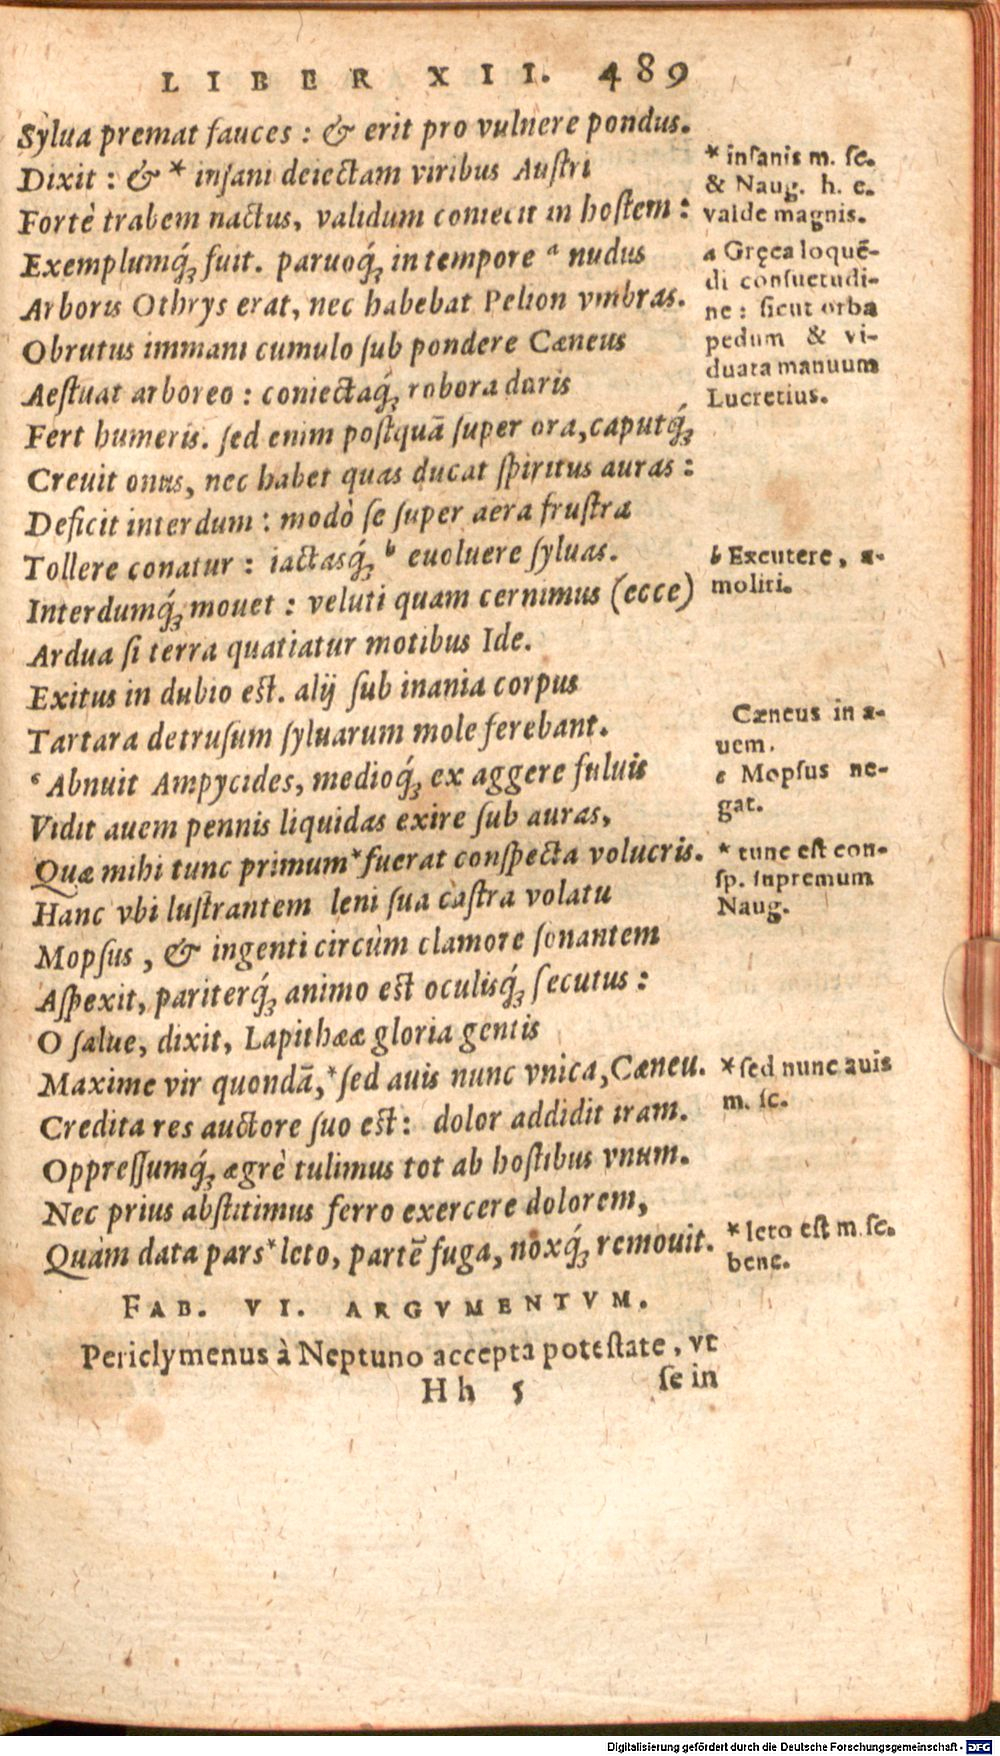 LIBER XII. 489
Sylua premat fauces : & erit pro vulnere pondus.
Dixit : & * insani deiectam viribus Austri
Fortè trabem nactus, validum coniecit in hostem :
Exemplumq́ꝫ fuit. paruoq́ꝫ in tempore ᵃ nudus
Arboris Othrys erat, nec habebat Pelion vmbras.
Obrutus immani cumulo sub pondere Cæneus
Aestuat arboreo : coniectaq́ꝫ robora duris
Fert humeris. sed enim postquā super ora, caputq́ꝫ
Creuit onus, nec habet quas ducat spiritus auras :
Deficit interdum : modò se super aera frustra
Tollere conatur : iactasq́ꝫ ᵇ euoluere syluas.
Interdumq́ꝫ mouet : veluti quam cernimus (ecce)
Ardua si terra quatiatur motibus Ide.
Exitus in dubio est. alij sub inania corpus
Tartara detrusum syluarum mole ferebant.
ᶜ Abnuit Ampycides, medioq́ꝫ ex aggere fuluis
Vidit auem pennis liquidas exire sub auras,
Quæ mihi tunc primum * fuerat conspecta volucris.
Hanc vbi lustrantem leni sua castra volatu
Mopsus, & ingenti circùm clamore sonantem
Aspexit, pariterq́ꝫ animo est oculisq́ꝫ secutus :
O salue, dixit, Lapithææ gloria gentis
Maxime vir quondā, * sed auis nunc vnica, Cæneu.
Credita res auctore suo est : dolor addidit iram.
Oppressumq́ꝫ ægrè tulimus tot ab hostibus vnum.
Nec prius abstitimus ferro exercere dolorem,
Quàm data pars * leto, partē fuga, noxq́ꝫ remouit.
FAB. VI. ARGVMENTVM.
Periclymenus à Neptuno accepta potestate, vt
Hh 5 se in
* insanis m. se.
& Naug. h. e.
valde magnis.
a Gręca loquē-
di consuetudi-
ne : sicut orba
pedum & vi-
duata manuum
Lucretius.
b Excutere, a-
moliri.
Cæneus in a-
uem.
c Mopsus ne-
gat.
* tunc est con-
sp. supremum
Naug.
* sed nunc auis
m. sc.
* leto est m. se.
bene.
Digitalisierung gefördert durch die Deutsche Forschungsgemeinschaft - DFG